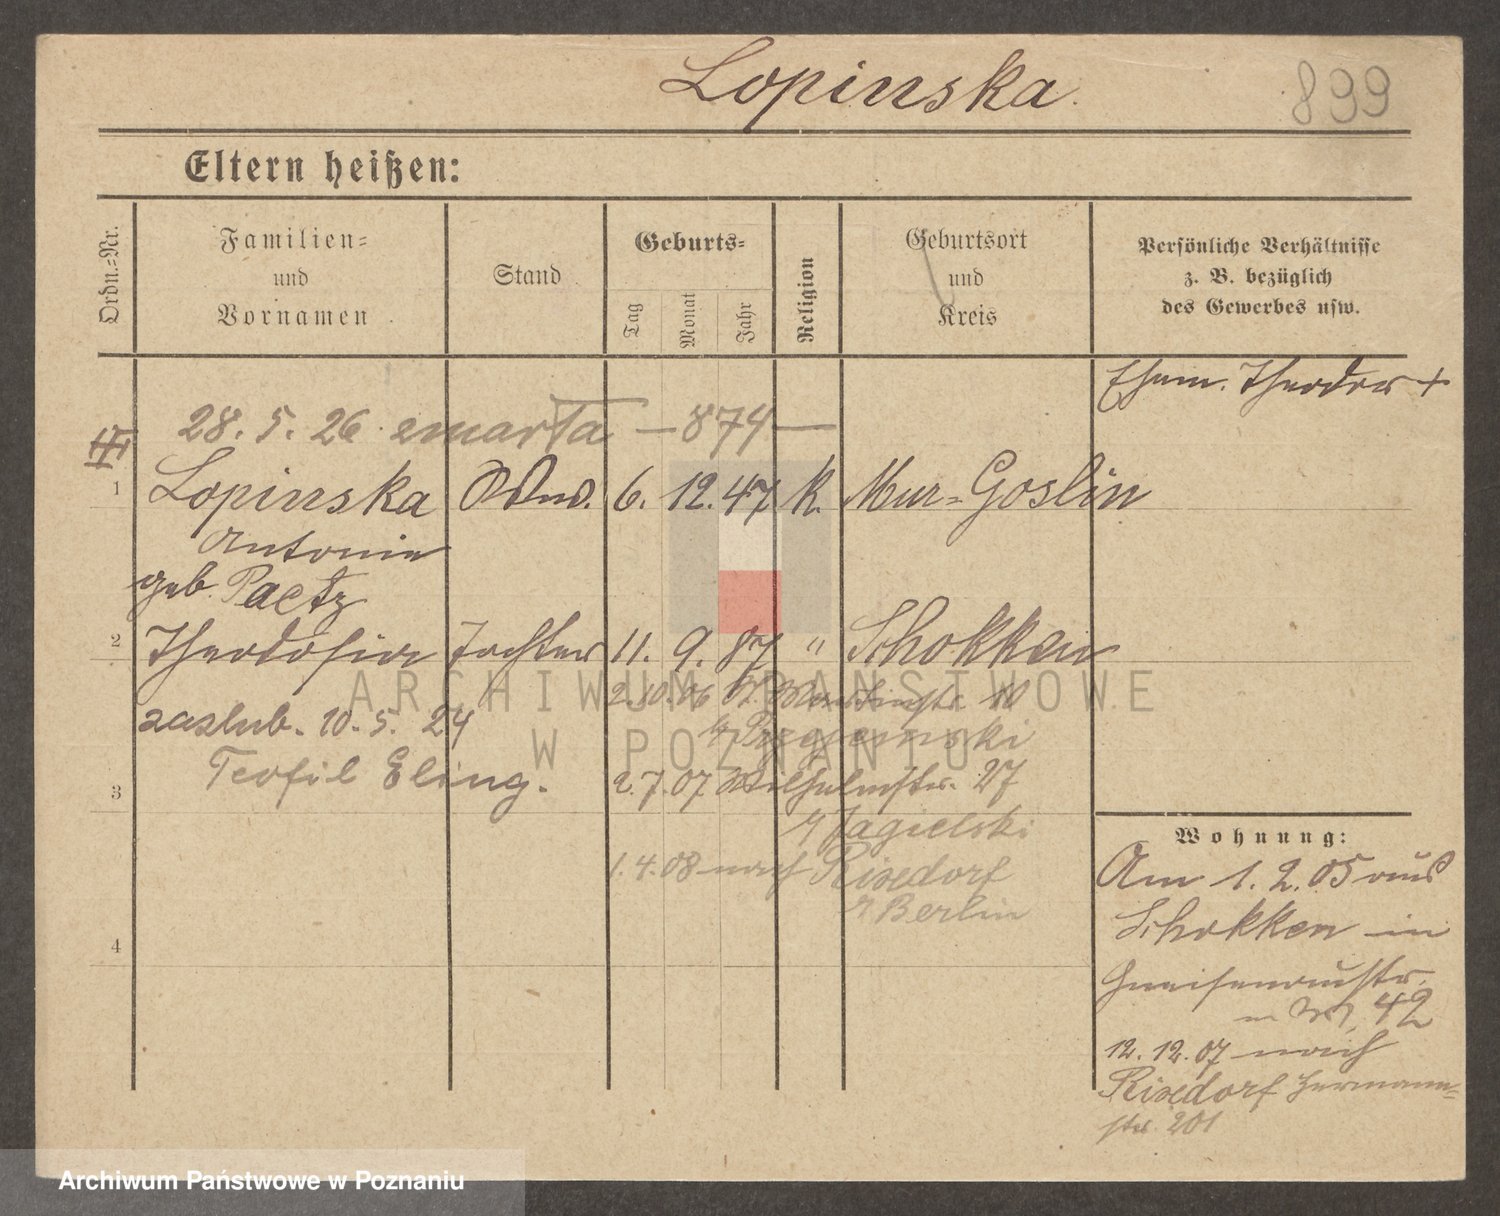 Lopinska.
899
Eltern heißen:
Ordn.-Nr.
Familien-
und
Vornamen
Stand
Geburts-
Tag
Monat
Jahr
Religion
Geburtsort
und
Kreis
Persönliche Verhältnisse
z. B. bezüglich
des Gewerbes usw.
Ehem. Theodor +
28. 5. 26 zmarła — 874 —
1 Lopinska Wwe. 6. 12. 47 k. Mur-Goslin
Antonie
geb. Paetz
2 Theodosia Tochter 11. 9. 87 " Schokken
2.10.06 10
zaslub. 10. 5. 24
Teofil Eling.
3 2.7.07 Wilhelmstr. 27
b/ Jagielski
1.4.08 nach Rixdorf
b/ Berlin
4
Wohnung:
Am 1. 2. 05 aus
Schokken in
Gneisenaustr.
42
12. 12. 07 nach
Rixdorf Hermann-
str. 201
ARCHIWUM PAŃSTWOWE
W POZNANIU
Archiwum Państwowe w Poznaniu